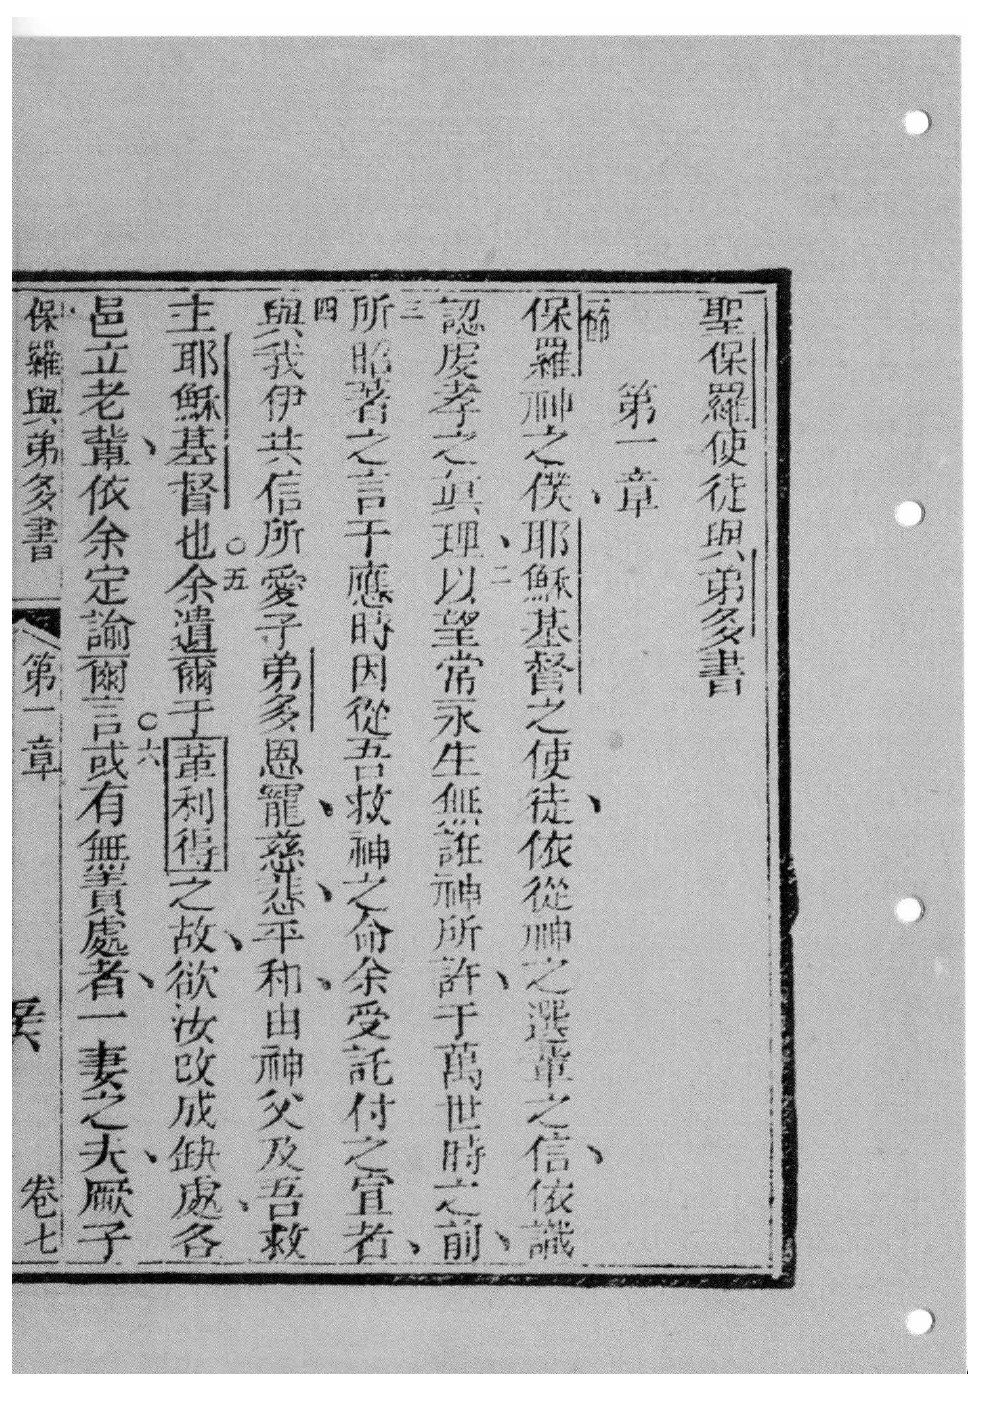 聖保羅使徒與弟多書
第一章
一節
保羅神之僕、耶穌基督之使徒、依從神之選輩之信、依識
認虔孝之眞理、二以望常永生無誑神所許、于萬世時之前、
三所昭著之言于應時因從吾救神之命余受託付之宣者、
四與我伊共信所愛子弟多恩寵、慈悲、平和、由神父及吾救
主耶穌基督也○五余遺爾于革利得之故、欲汝改成缺處、各
邑立老輩、依余定諭爾言○六或有無責處者、一妻之夫、厥子
保羅與弟多書 第一章 卷七